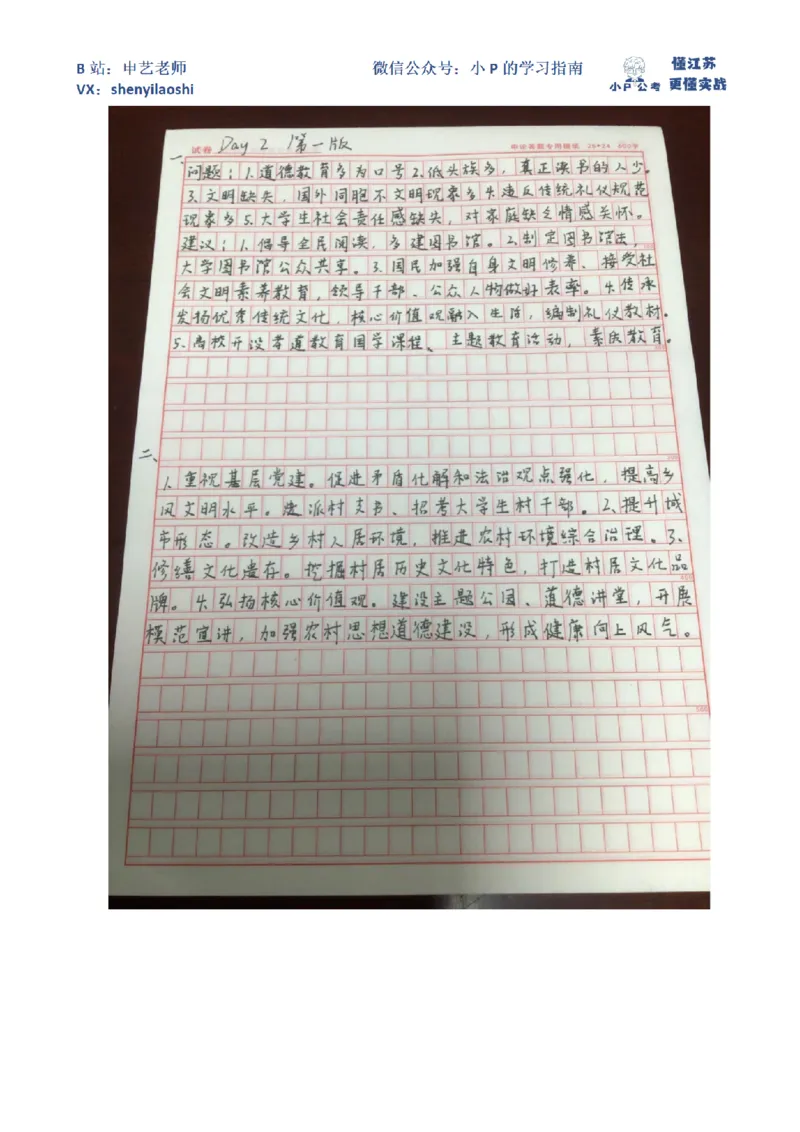 B 站：申艺老师
微信公众号：小 P 的学习指南
VX：shenyilaoshi
小P公考
懂江苏
更懂实战
试卷 Day 2 第一版
申论答题专用稿纸 25*24 600字
一、
问题：1.道德教育多为口号2.低头族多，真正读书的人少。
3.文明缺失，国外同胞不文明现象多4.违反传统礼仪规范
现象多5.大学生社会责任感缺失，对家庭缺乏情感关怀。
建议：1.倡导全民阅读，多建图书馆。2.制定图书馆法，
大学图书馆公众共享。3.国民加强自身文明修养、接受社
会文明素养教育，领导干部、公众人物做好表率。4.传承
发扬优秀传统文化，核心价值观融入生活，编制礼仪教材。
5.高校开设孝道教育国学课程、主题教育活动，素质教育。
二、
1.重视基层党建。促进矛盾化解和法治观点强化，提高乡
风文明水平。选派村支书、招考大学生村干部。2.提升城
市形态。改造乡村人居环境，推进农村环境综合治理。3.
修缮文化遗存。挖掘村居历史文化特色，打造村居文化品
牌。4.弘扬核心价值观。建设主题公园、道德讲堂，开展
模范宣讲，加强农村思想道德建设，形成健康向上风气。